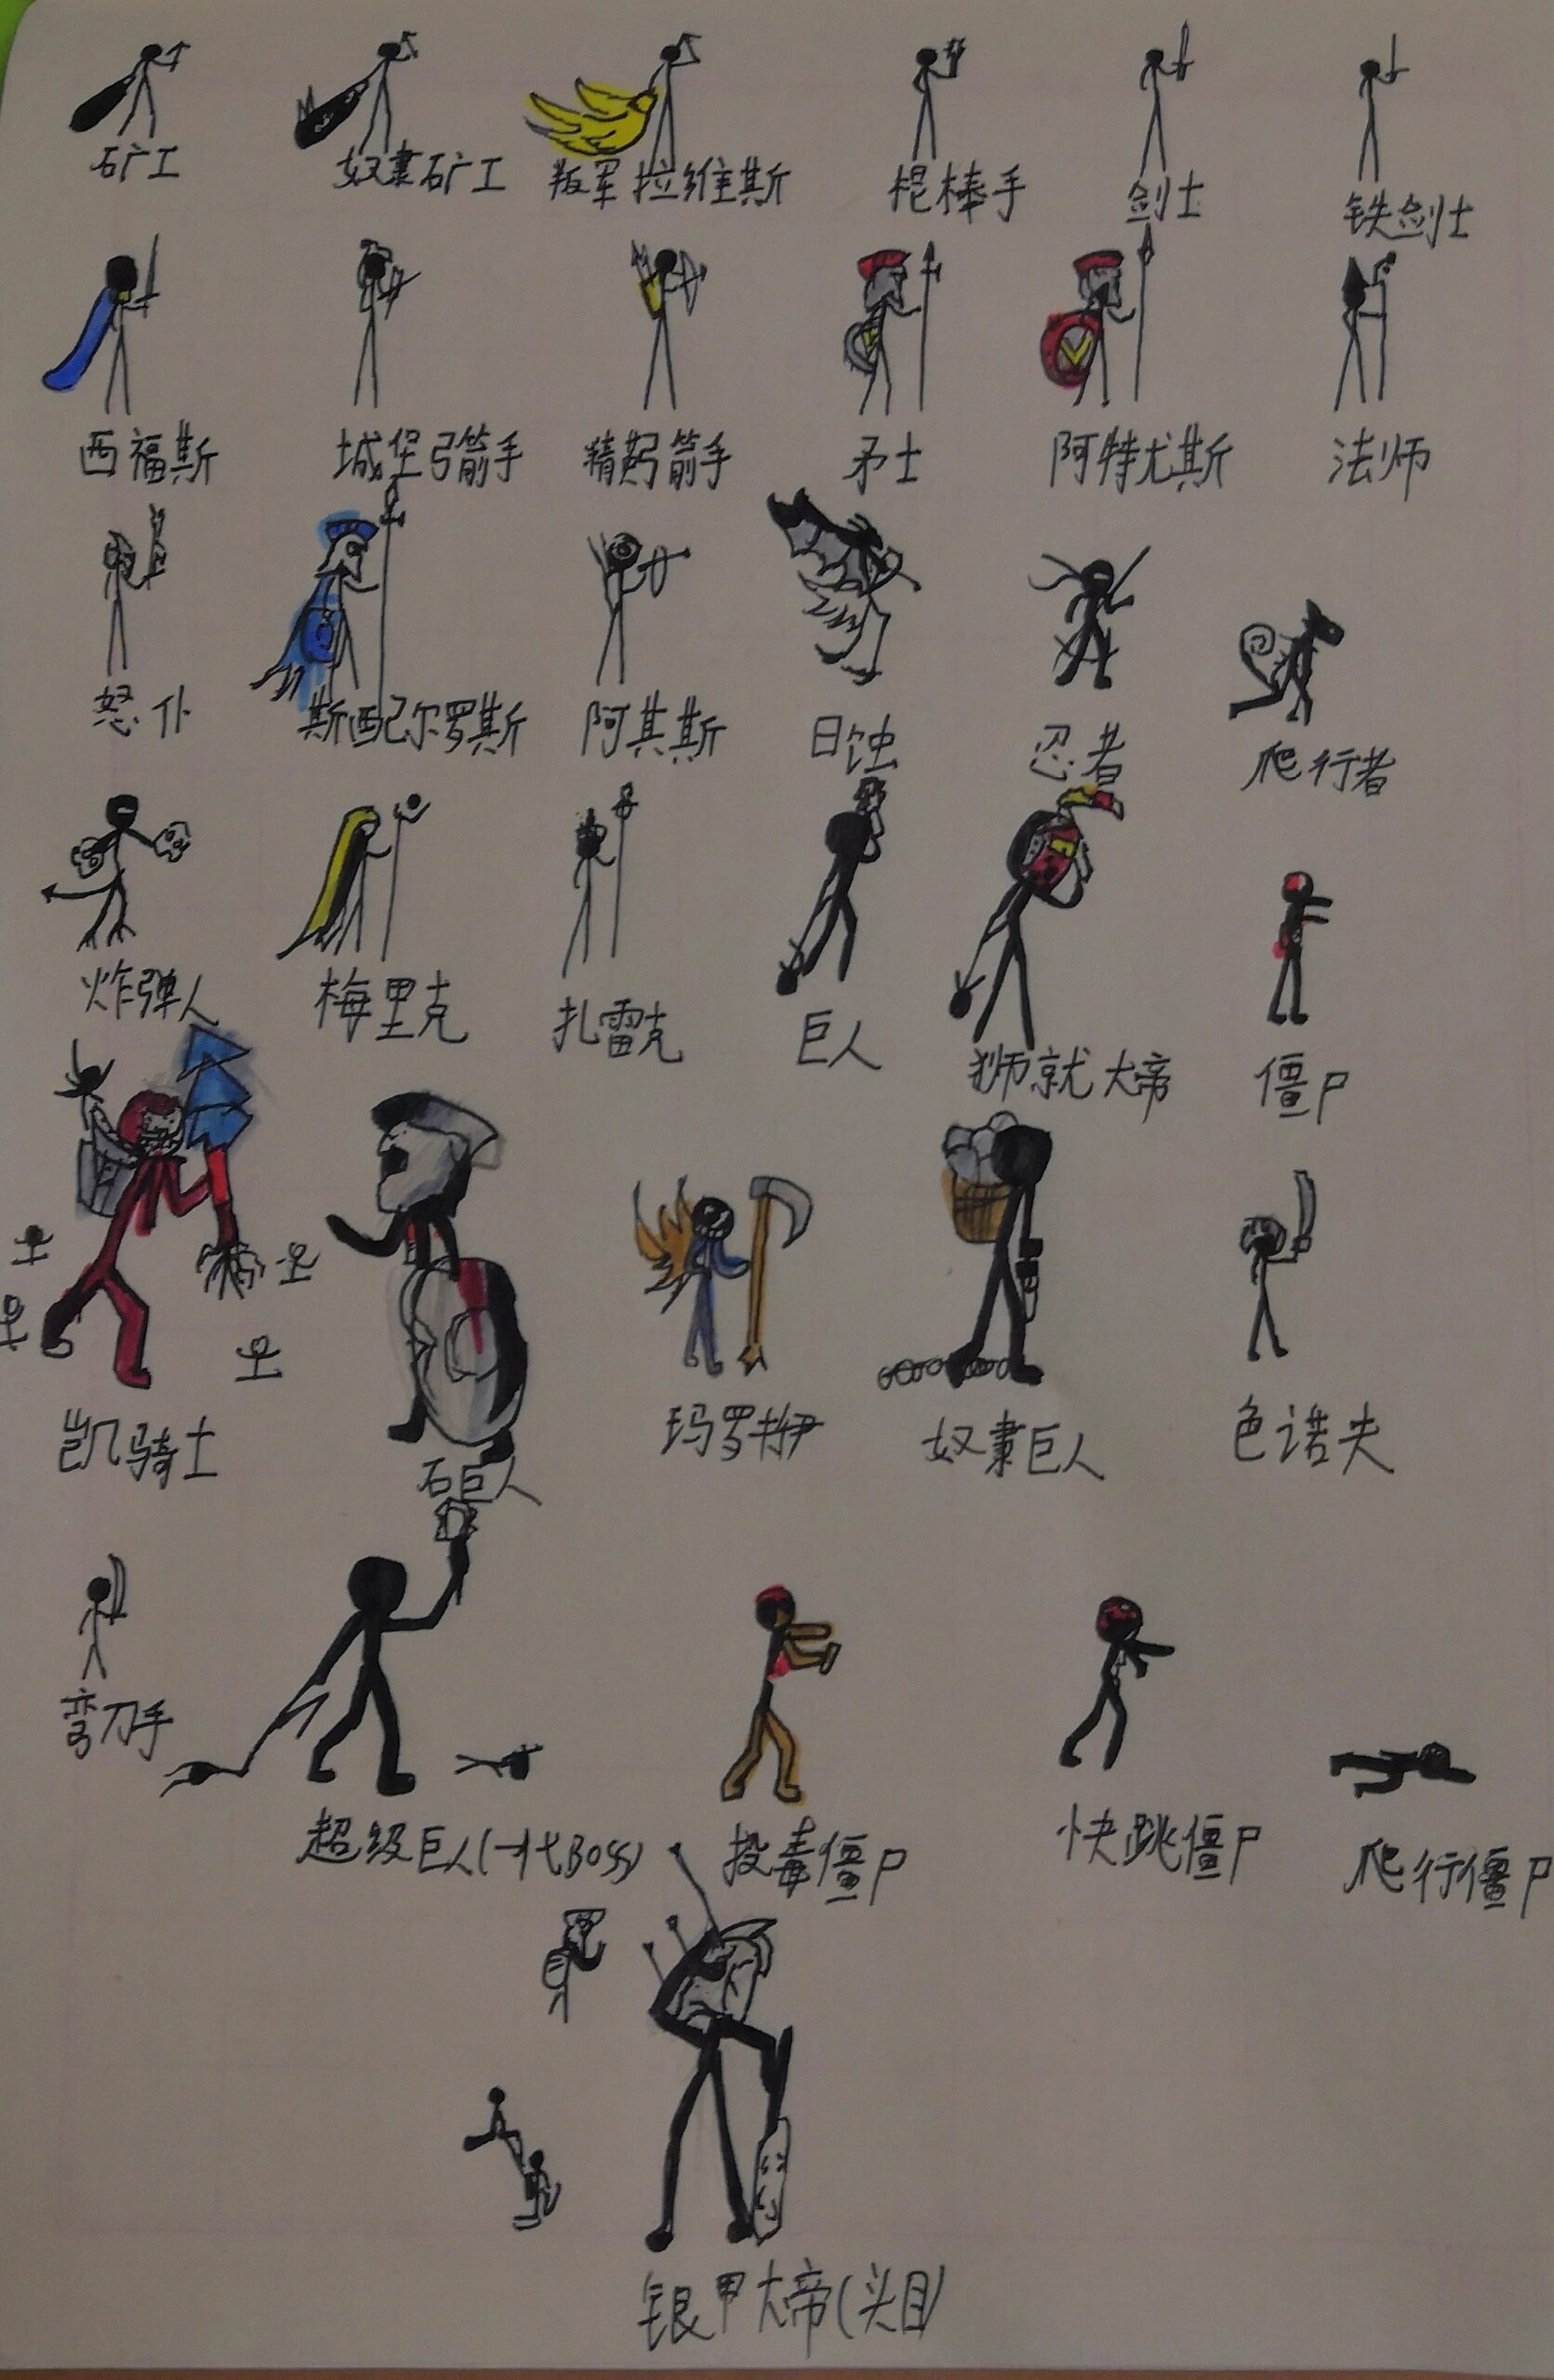 石矿工
奴隶矿工
叛军拉维斯
棍棒手
剑士
铁剑士
西福斯
城堡弓箭手
精灵弓箭手
矛士
阿特尤斯
法师
怒仆
斯西配尔罗斯
阿其斯
日蚀
忍者
爬行者
炸弹人
梅里克
扎雷克
巨人
狮就大帝
僵尸
凯骑士
石巨人
奴隶巨人
色诺夫
弯刀手
超级巨人(一代BOSS)
投毒僵尸
快跳僵尸
爬行僵尸
银甲大帝(头目)